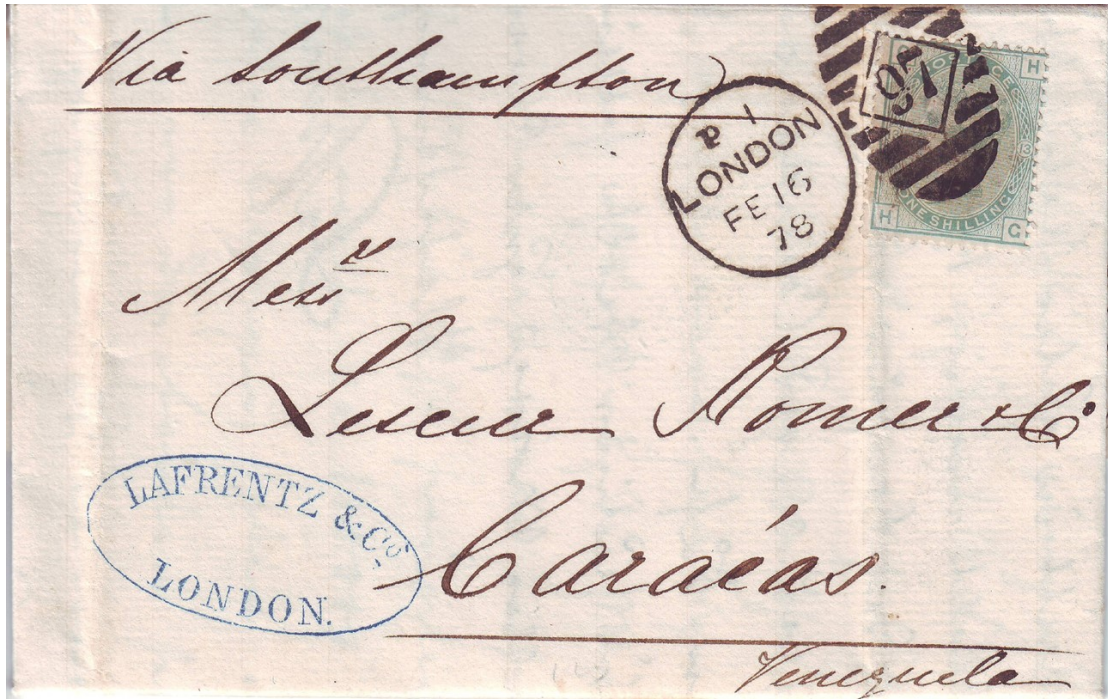 Via Southampton
P 1
LONDON
FE 16
78
POSTAGE
H
13
H
ONE SHILLING
G
Messrs
Leseur Romer & Co
LAFRENTZ & Co.
LONDON.
Carácas.
Venezuela